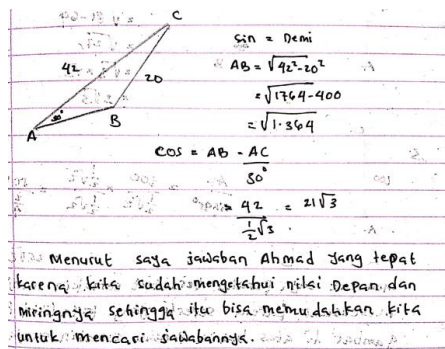 C
42
20
30°
A
B
Sin = Demi
AB = √42²-20²
= √1764-400
= √1.364
COS = AB = AC
30°
= 42 = 21√3
½√3
Menurut saya jawaban Ahmad yang tepat
karena kita sudah mengetahui nilai Depan dan
miringnya sehingga itu bisa memudahkan kita
untuk mencari jawabannya.